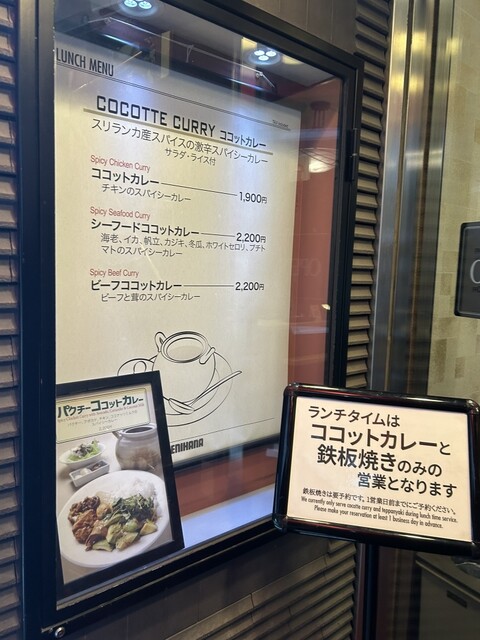 LUNCH MENU
COCOTTE CURRY ココットカレー
スリランカ産スパイスの激辛スパイシーカレー
サラダ・ライス付
Spicy Chicken Curry
ココットカレー 1,900円
チキンのスパイシーカレー
Spicy Seafood Curry
シーフードココットカレー 2,200円
海老、イカ、帆立、カジキ、冬瓜、ホワイトセロリ、プチト
マトのスパイシーカレー
Spicy Beef Curry
ビーフココットカレー 2,200円
ビーフと茸のスパイシーカレー
ENIHANA
パクチーココットカレー
ランチタイムは
ココットカレーと
鉄板焼きのみの
営業となります
鉄板焼きは要予約です。1営業日前までにご予約ください。
We currently only serve cocotte curry and teppanyaki during lunch time service.
Please make your reservation at least 1 business day in advance.